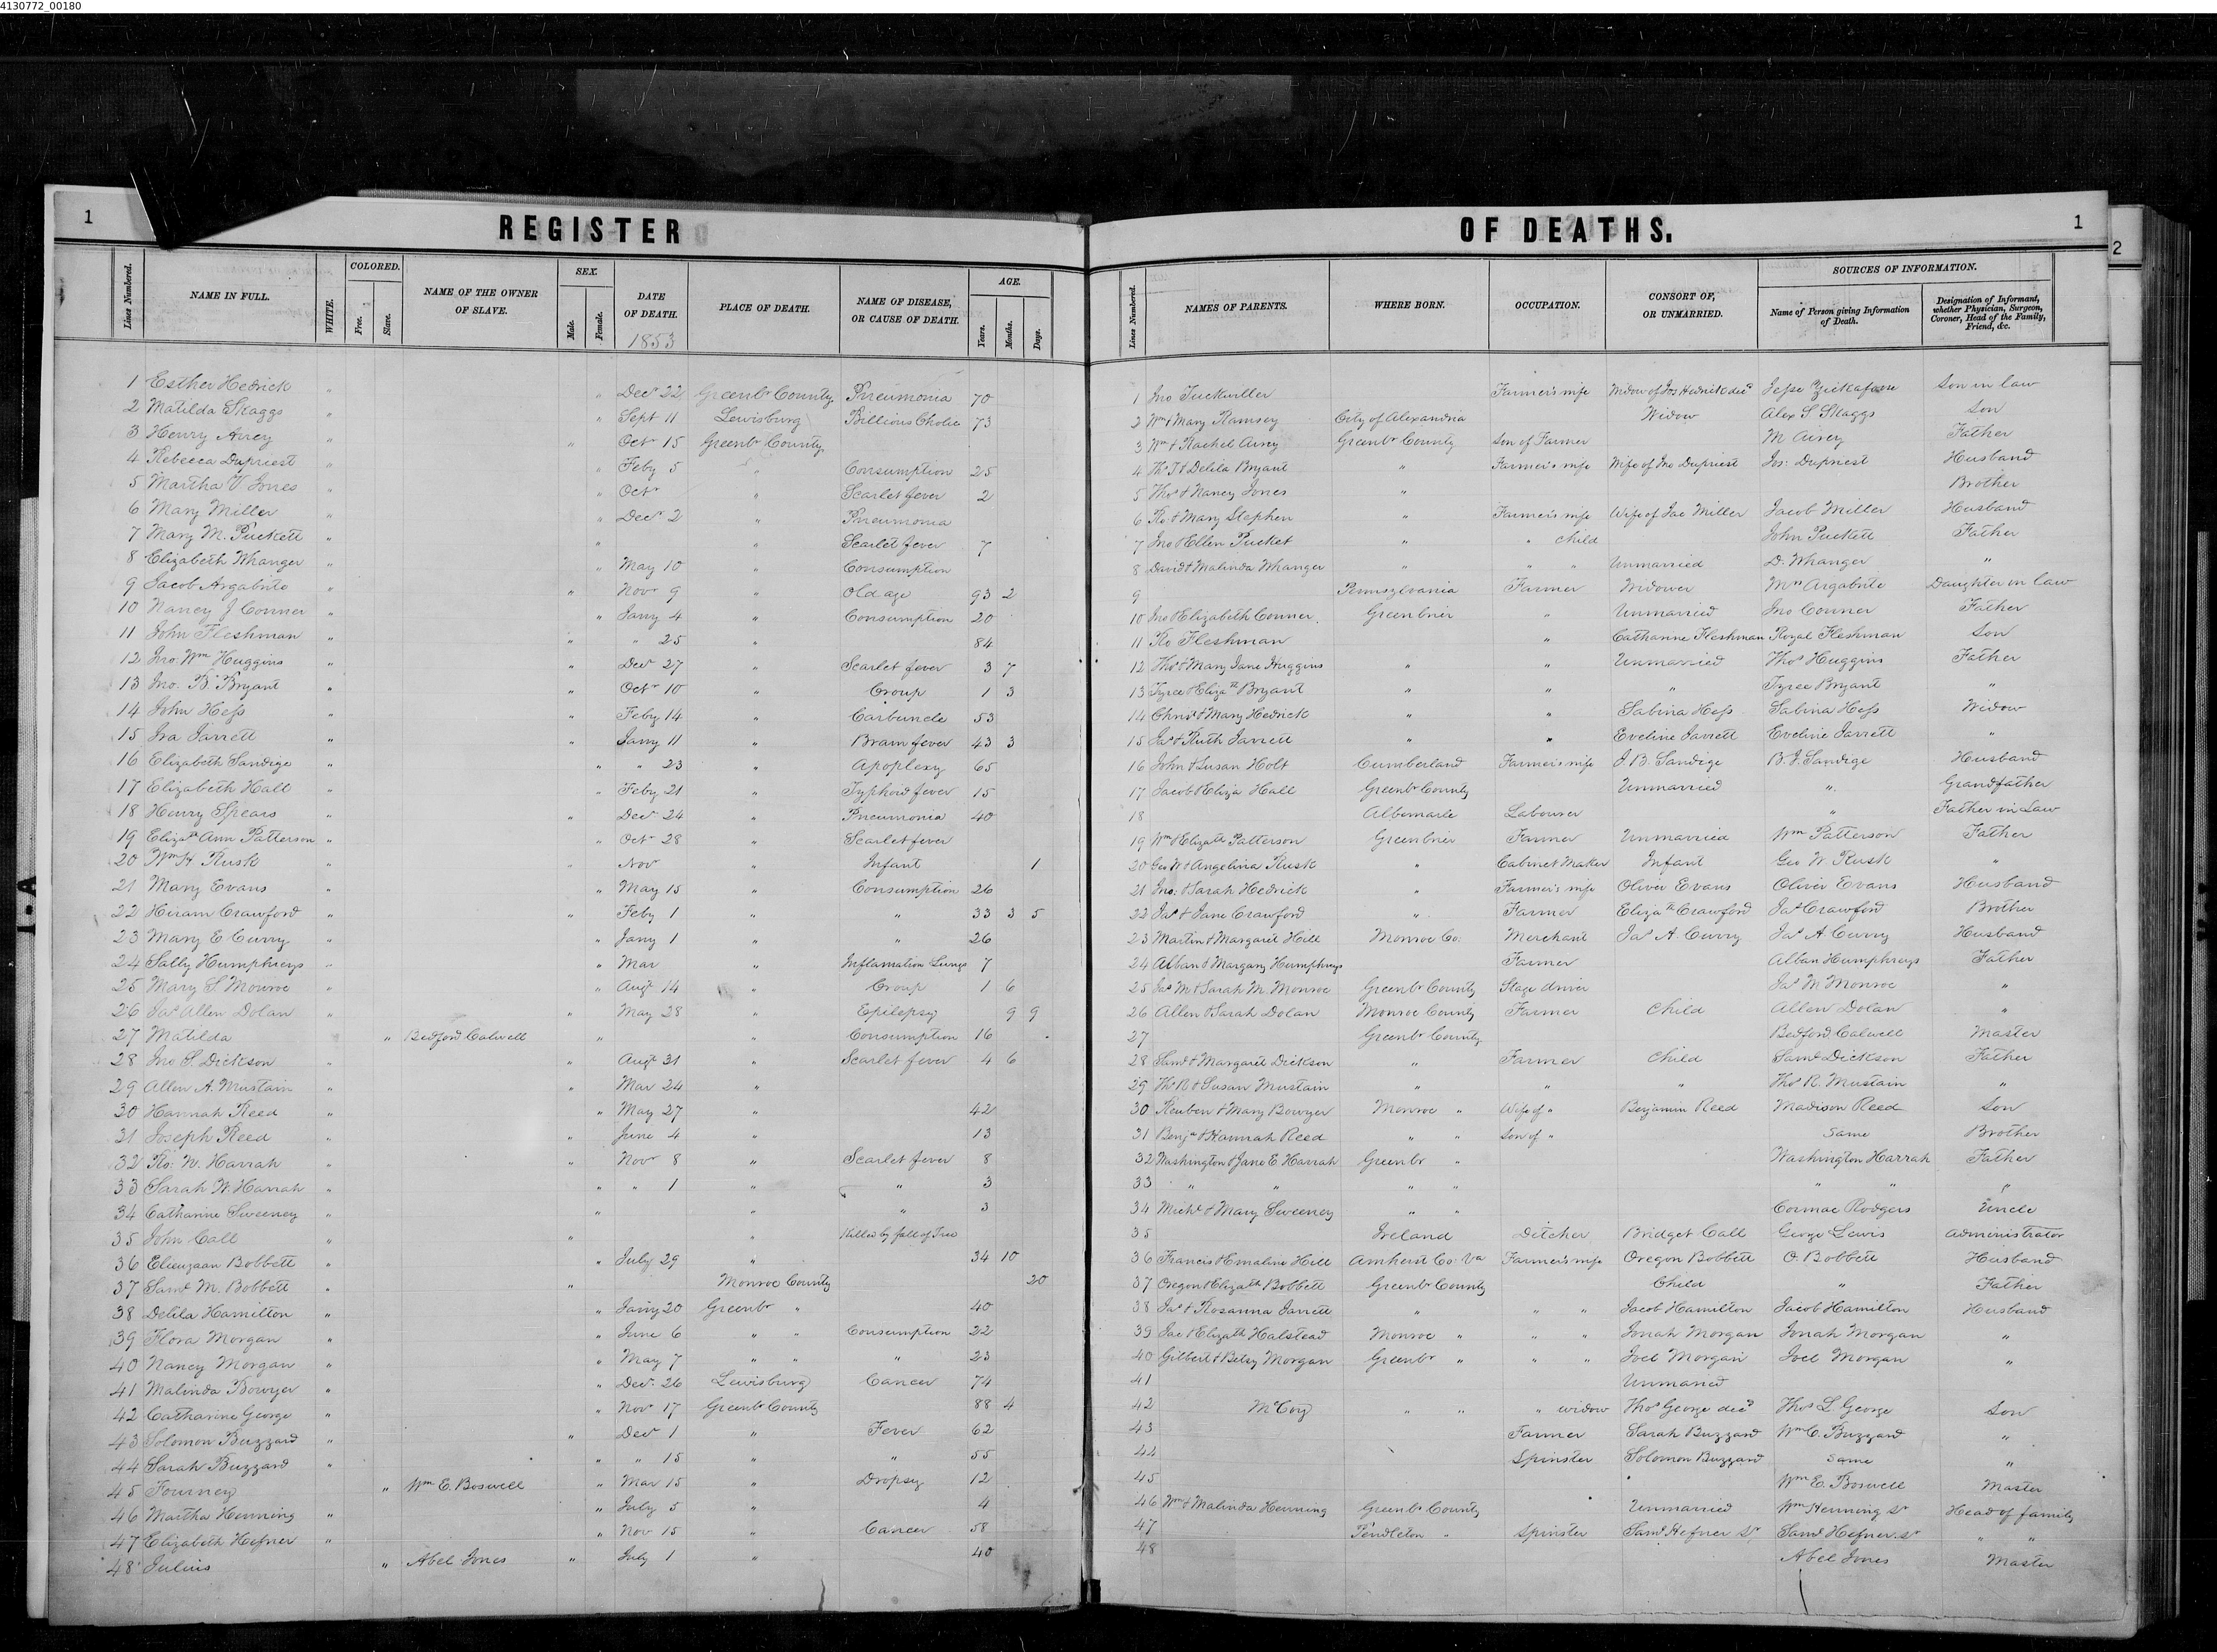 4130772_00180
1 REGISTER OF DEATHS. 1
2
Lines Numbered. NAME IN FULL. WHITE. COLORED. Free. Slave. NAME OF THE OWNER OF SLAVE. SEX. Male. Female. DATE OF DEATH. 1853 PLACE OF DEATH. NAME OF DISEASE, OR CAUSE OF DEATH. AGE. Years. Months. Days.
Lines Numbered. NAMES OF PARENTS. WHERE BORN. OCCUPATION. CONSORT OF, OR UNMARRIED. SOURCES OF INFORMATION. Name of Person giving Information of Death. Designation of Informant, whether Physician, Surgeon, Coroner, Head of the Family, Friend, &c.
1 Esther Hedrick " " Decr 22 Greenbr County Pneumonia 70 1 Jno Tuckwiller Farmer's wife Widow of Jos Hedrick decd Jesse Son in law
2 Matilda Skaggs " " Sept 11 Lewisburg Billious Cholic 73 2 Wm & Mary Ramsey City of Alexandria Widow Alex S. Skaggs Son
3 Henry Airey " " Octr 15 Greenbr County 3 Wm & Rachel Airey Greenbr County Son of Farmer M Airey Father
4 Rebecca Dupriest " " Feby 5 " Consumption 25 4 Th T & Delila Bryant " Farmer's wife Wife of Jno Dupriest Jos: Dupriest Husband
5 Martha V Jones " " Octr " Scarlet fever 2 5 Thos & Nancy Jones " Brother
6 Mary Miller " " Decr 2 " Pneumonia 6 Ro. & Mary Stephen " Farmer's wife Wife of Jac Miller Jacob Miller Husband
7 Mary M. Puckett " " " Scarlet fever 7 7 Jno & Ellen Pucket " " child John Puckett Father
8 Elizabeth Whanger " " May 10 " Consumption 8 David & Malinda Whanger " " " Unmarried D. Whanger "
9 Jacob Argabrite " " Novr 9 " Old age 93 2 9 Pennsylvania Farmer Widower Mrs Argabrite Daughter in law
10 Nancy J Conner " " Jany 4 " Consumption 20 10 Jno & Elizabeth Conner Greenbrier " Unmarried Jno Conner Father
11 John Fleshman " " " 25 " 84 11 Ro Fleshman " Catharine Fleshman Royal Fleshman Son
12 Jno Wm Huggins " " Decr 27 " Scarlet fever 3 7 12 Thos & Mary Jane Huggins " " Unmarried Thos Huggins Father
13 Jno. B. Bryant " " Octr 10 " Croup 1 3 13 Tyree & Elizath Bryant " " " Tyree Bryant "
14 John Hess " " Feby 14 " Carbuncle 53 14 Christ & Mary Hedrick " " Sabina Hess Sabina Hess Widow
15 Ira Jarrett " " Jany 11 " Brain fever 43 3 15 Jas & Ruth Jarrett " " Eveline Jarrett Eveline Jarrett "
16 Elizabeth Sandige " " " 23 " Apoplexy 65 16 John & Susan Holt Cumberland Farmer's wife J B. Sandige B. J. Sandige Husband
17 Elizabeth Hall " " Feby 21 " Typhoid fever 15 17 Jacob & Eliza Hall Greenbr County Unmarried " Grandfather
18 Henry Spears " " Decr 24 " Pneumonia 40 18 Albemarle Labourer " Father in Law
19 Elizath Ann Patterson " " Octr 28 " Scarlet fever 19 Wm & Elizath Patterson Greenbrier Farmer Unmarried Wm Patterson Father
20 Wm H. Rusk " " Novr " Infant 1 20 Geo W & Angelina Rusk " Cabinet Maker Infant Geo W Rusk "
21 Mary Evans " " May 15 " Consumption 26 21 Jno: & Sarah Hedrick " Farmer's wife Oliver Evans Oliver Evans Husband
22 Hiram Crawford " " Feby 1 " " 33 3 5 22 Jas & Jane Crawford " Farmer Elizath Crawford Jas Crawford Brother
23 Mary E Curry " " Jany 1 " " 26 23 Martin & Margaret Hill Monroe Co: Merchant Jas A. Curry Jas A Curry Husband
24 Sally Humphreys " " Mar " Inflamation Lungs 7 24 Alban & Margary Humphreys Farmer Alban Humphreys Father
25 Mary S Monroe " " Augt 14 " Croup 1 6 25 Jas M & Sarah M. Monroe Greenbr County Stage driver Jas M Monroe "
26 Jas Allen Dolan " " May 28 " Epilepsy 9 9 26 Allen & Sarah Dolan Monroe County Farmer Child Allen Dolan "
27 Matilda " Bedford Calwell " " Consumption 16 27 Greenbr County Bedford Calwell Master
28 Jno S. Dickson " " Augt 31 " Scarlet fever 4 6 28 Saml & Margaret Dickson " Farmer Child Saml Dickson Father
29 Allen A. Mustain " " Mar 24 " 29 Thos R & Susan Mustain " " " Thos R. Mustain "
30 Hannah Reed " " May 27 " 42 30 Reuben & Mary Bowyer Monroe " Wife of " Benjamin Reed Madison Reed Son
31 Joseph Reed " " June 4 " 13 31 Benja & Hannah Reed " " Son of " Same Brother
32 Ro: W. Harrah " " Novr 8 " Scarlet fever 8 32 Washington & Jane E Harrah Greenbr " Washington Harrah Father
33 Sarah W. Harrah " " " 1 " " 3 33 " " " " " " "
34 Catharine Sweeney " " " " 3 34 Michl & Mary Sweeney " " Cormac Rodgers Uncle
35 John Call " " " Killed by fall of Tree 35 Ireland Ditcher Bridget Call George Lewis Administrator
36 Bobbett " " July 29 " 34 10 36 Francis & Emaline Hill Amherst Co: Va Farmer's wife Oregon Bobbett O Bobbett Husband
37 Saml M. Bobbett " " Monroe County 20 37 Oregon & Elizath Bobbett Greenbr County Child " Father
38 Delila Hamilton " " Jany 20 Greenbr " 40 38 Jas & Rosanna Jarrett " " " Jacob Hamilton Jacob Hamilton Husband
39 Flora Morgan " " June 6 " " Consumption 22 39 Jac & Elizath Halstead Monroe " " " Jonah Morgan Jonah Morgan "
40 Nancy Morgan " " May 7 " " " 23 40 Gilbert & Betsy Morgan Greenbr " " " Joel Morgan Joel Morgan "
41 Malinda Bowyer " " Decr 26 Lewisburg Cancer 74 41 Unmaried
42 Catharine George " " Novr 17 Greenbr County 88 4 42 McCoy " " " widow Thos George decd Thos L. George Son
43 Solomon Buzzard " " Decr 1 " Fever 62 43 Farmer Sarah Buzzard Wm C. Buzzard "
44 Sarah Buzzard " " " 15 " " 55 44 Spinster Solomon Buzzard Same "
45 Fourney " Wm E. Boswell " Mar 15 " Dropsy 12 45 Wm E. Boswell Master
46 Martha Henning " " July 5 " 4 46 Wm & Malinda Henning Greenbr County Unmarried Wm Henning Sr Head of family
47 Elizabeth Hefner " " Nov 15 " Cancer 58 47 Pendleton " Spinster Saml Hefner Sr Saml Hefner Sr " "
48 Julius " Abel Jones " July 1 " 40 48 Abel Jones Master